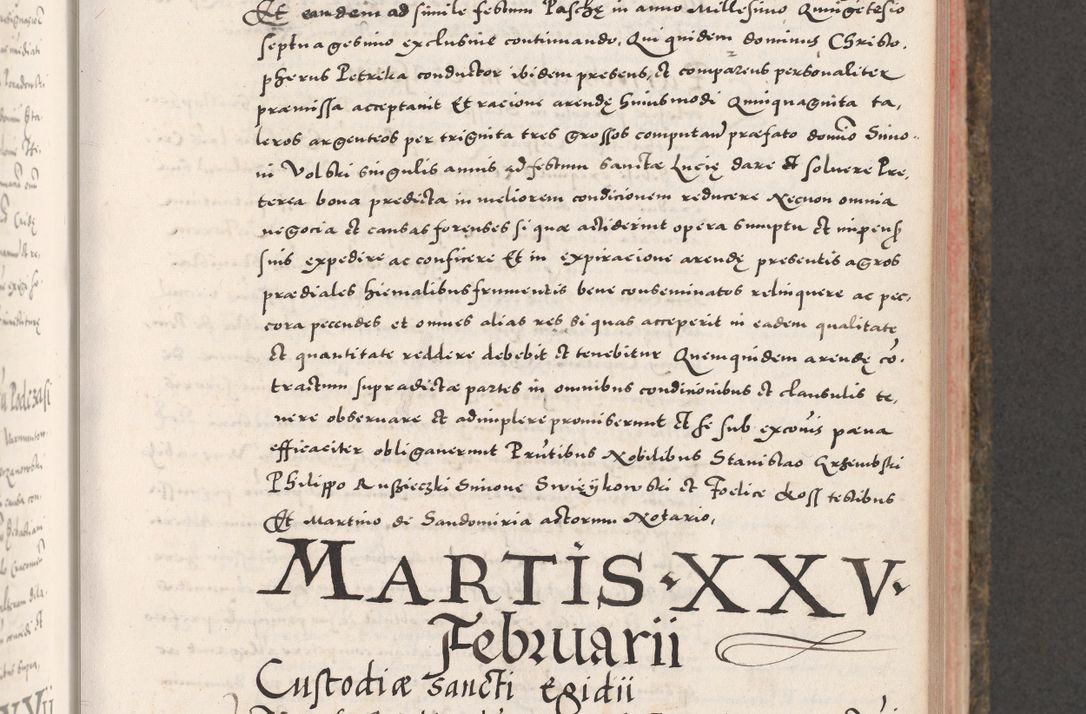 Et eandem ad simile festum Paschę in anno Millesimo Quingētesio
septuagesimo exclusiue continuando, Qui quidem dominus Christo,
pherus Petrika conductor ibidem presens, et comparens personaliter
præmissa acceptauit Et racione arendę huiusmodi Quinquaginta ta,
leros argenteos per triginta tres grossos computan præfato domīo Simo,
ni Volski singulis annis ad festum Sanctæ Lucię dare et soluere Pre,
terea bona predicta in meliorem condicionem reducere Necnon omnia
negocia et causas forenses si quæ acciderint opera sumptu et impens
suis expedire ac conficere Et in expiracione arendę presentis agros
prædiales hiemalibus frumentis bene conseminatos relinquere ac pec,
cora pecudes et omnes alias res si quas acceperit in eadem qualitate
et quantitate reddere debebit et tenebitur Quemquidem arendę cō,
tractum supradictæ partes in omnibus condicionibus et clausulis te,
nere obseruare et adimplere promiserunt Et se sub excōis pæna
efficaciter obligauerunt Prūtibus Nobilibus Stanislao Krzembski
Philippo Russieczki Simone Swięykowski et Foelice Ross testibus
Et Martino de Sandomiria actorum Notario,
MARTIS · XXV ·
Februarii
Custodiæ sancti Egidii